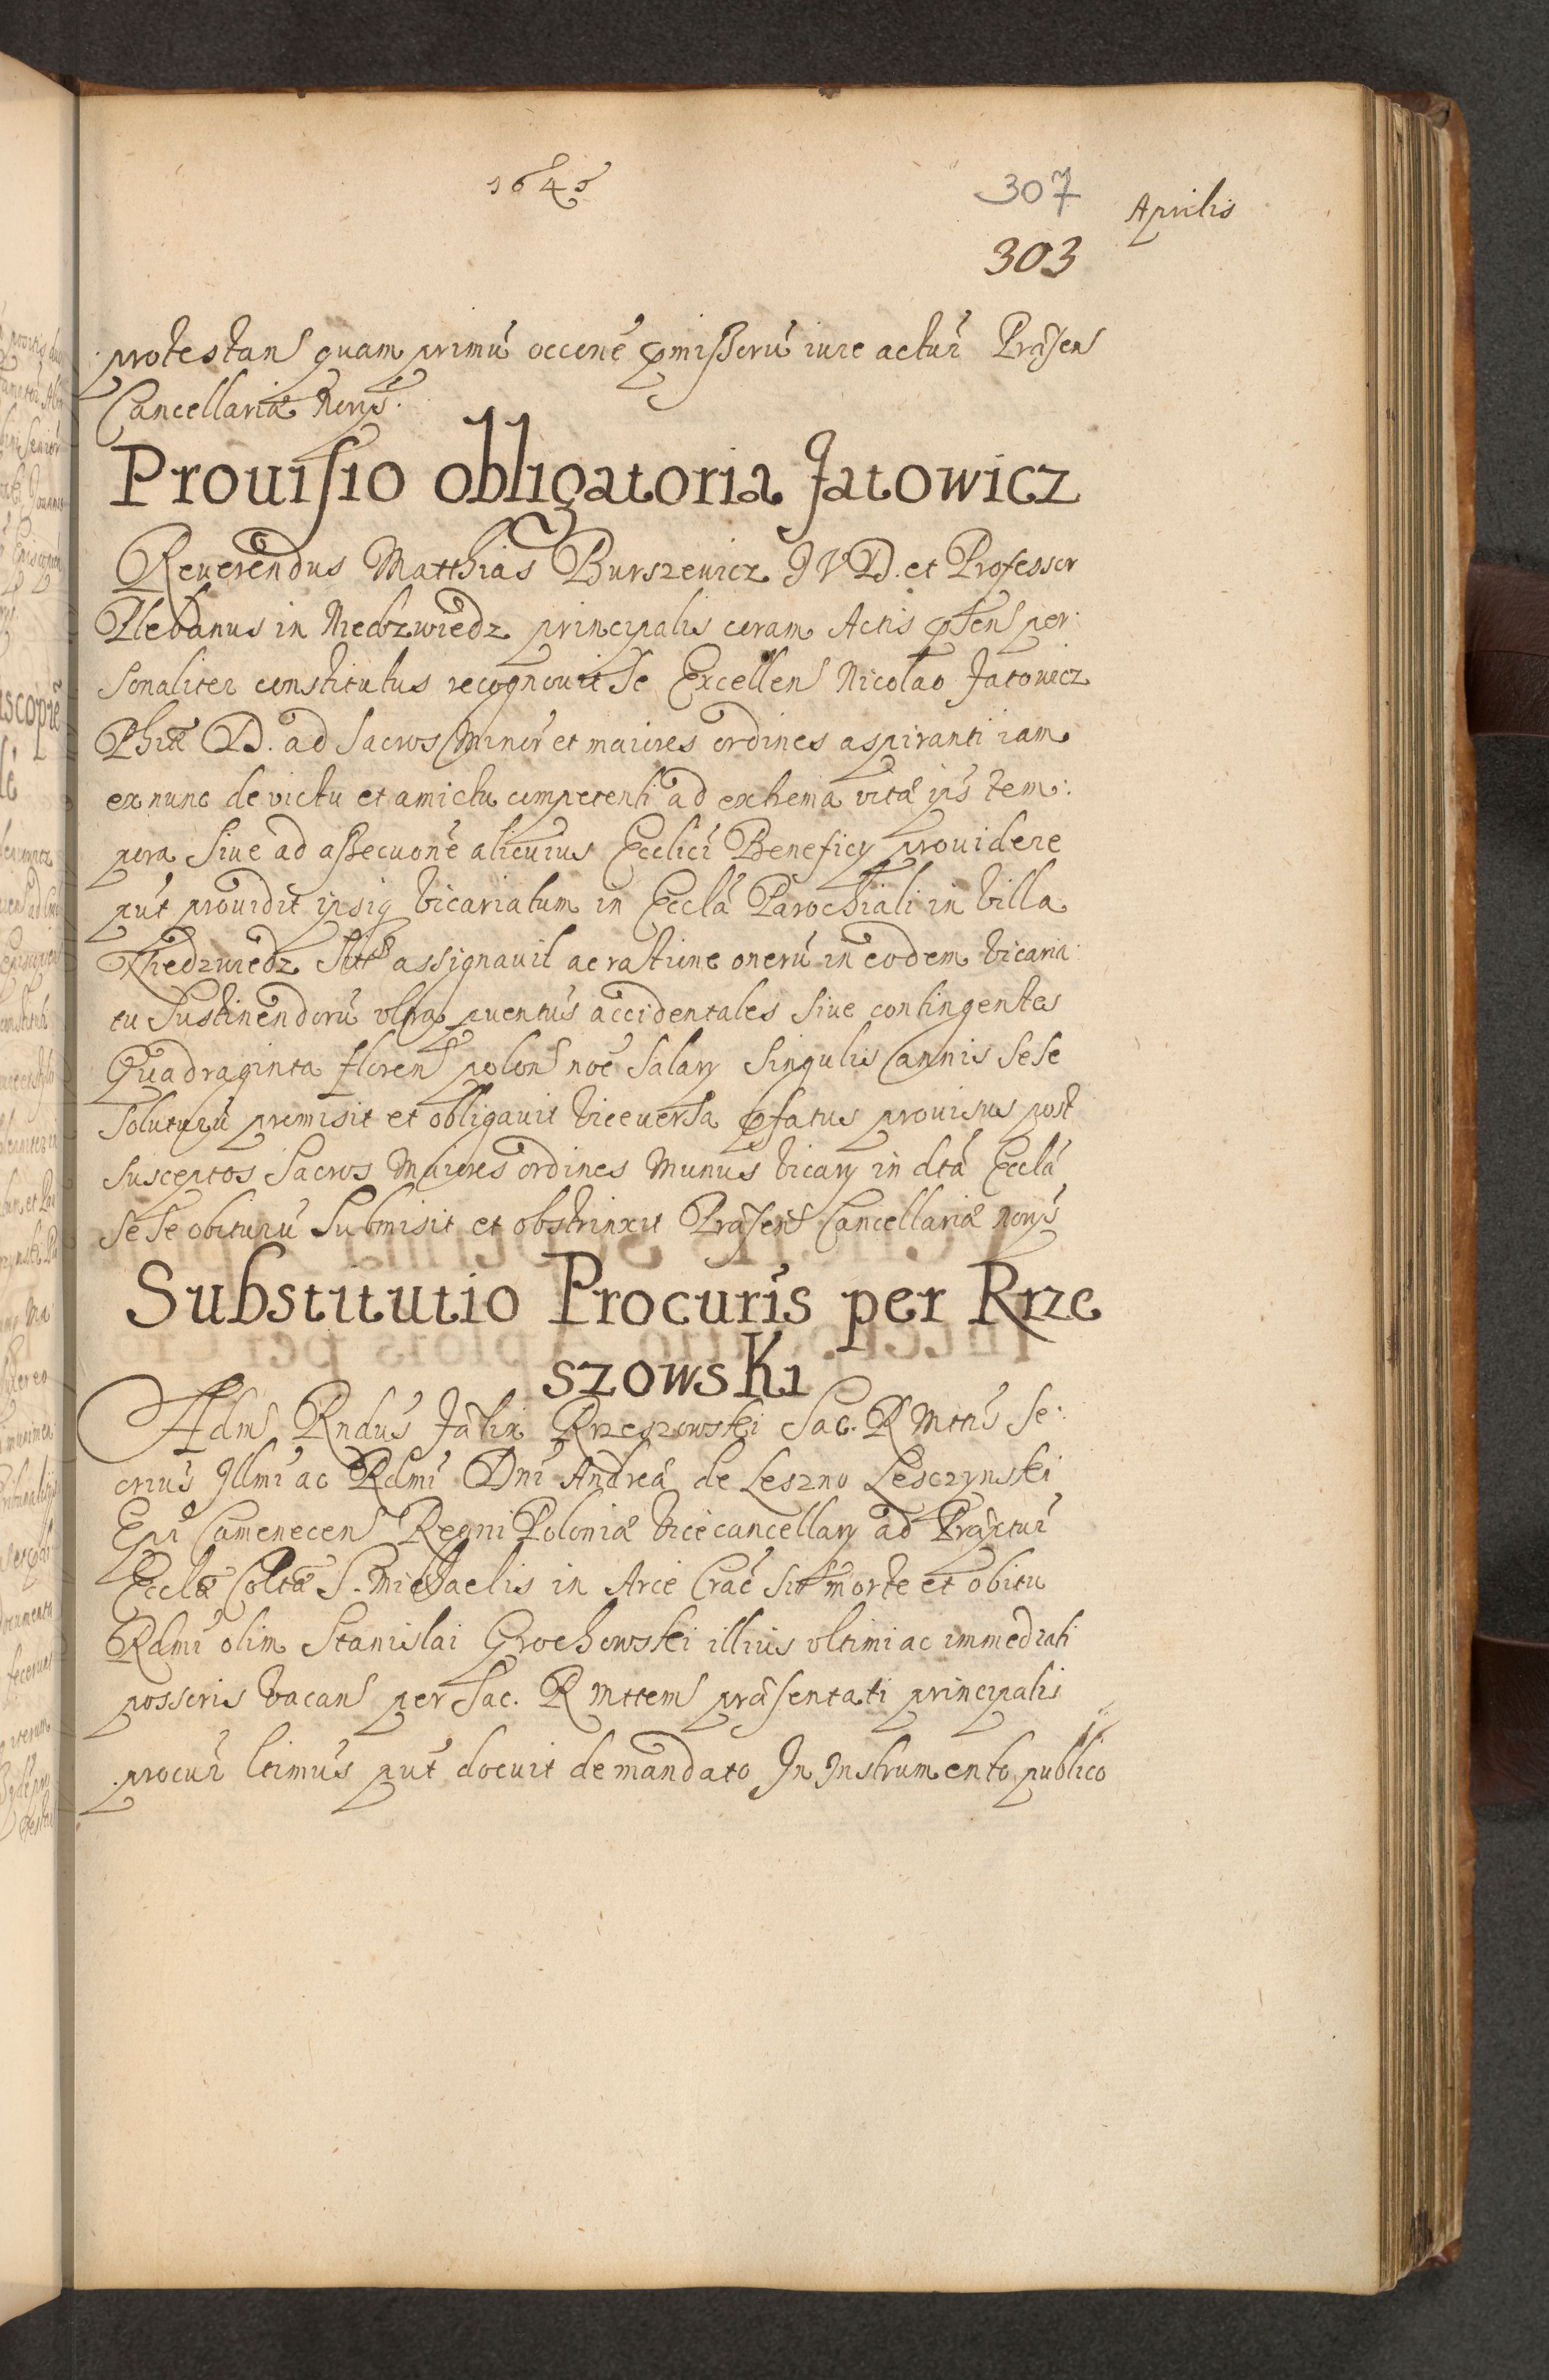 1645
307
Aprilis
303
protestans quam primũ occone p̃missorũ iure acturũ Præsen
Cancellariæ Norys.
Prouisio obligatoria Jatowicz
Reuerendus Matthias Burszewicz JVD. et Professor
Plebanus in Niedzwiedz principalis coram Actis p̃sen per:
sonaliter constitutus recognouit se Excellen Nicolao Jatowicz
Phiæ D. ad sacros minor et maiores ordines aspiranti iam
ex nunc de victu et amictu competenti ad extrema vitæ ips tem:
pora siue ad assecuonẽ alicuius Ecclici Beneficy prouidere
put prouidit ipsiq vicariatum in Eccla Parochiali in villa
Niedzwiedz assignauit ac ratione onerũ in eodem vicaria:
tu sustinendorũ vltra puentus accidentales siue contingentes
Quadraginta floren polon noe salary singulis annis sese
soluturũ promisit et obligauit viceuersa p̃fatus prouisus post
susceptos sacros maiores ordines munus vicary in dta Eccla
sese obiturũ submisit et obstrinxit Præsen Cancellariæ norys
Substitutio Procuris per Rrze
szowski
Adm Rndus Rrzeszowski Sac. R Mttis Se:
crius Illmi ac Rdmi Dni Andreæ de Leszno Lesczynski
Epi Camenecen Regni Poloniæ vicecancellary ad Præptur
Ecclæ Coltæ S. Michaelis in Arce Crac sit morte et obitu
Rdmi olim Stanislai Grochowski illius vltimi ac immediati
possoris vacan per Sac. R Mttem præsentati principalis
procur ltimus put docuit de mandato In Instrumento publico